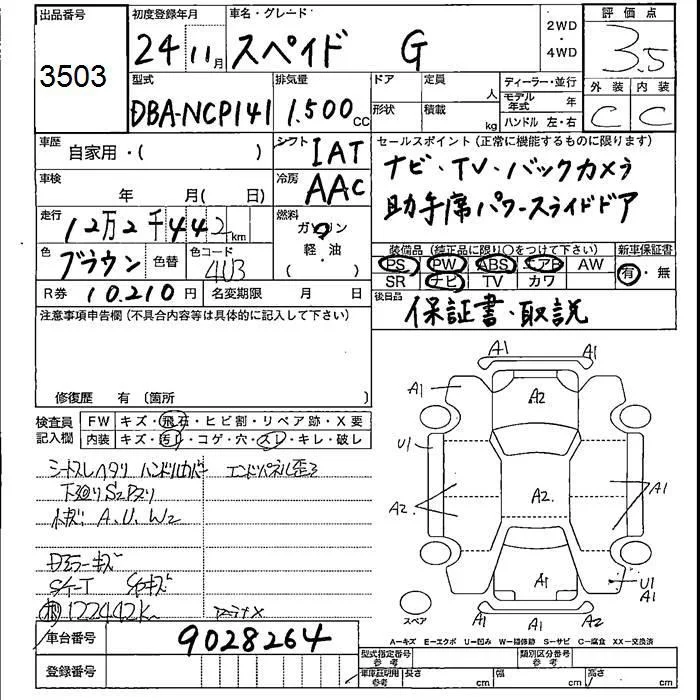 出品番号
3503
初度登録年月
24 11月
車名・グレード
スペイド G
2WD
・
4WD
評価点
3.5
型式
DBA-NCP141
排気量
1.500cc
ドア
形状
定員
人
積載
kg
ディーラー・並行
モデル年式 年
ハンドル 左・右
外装 内装
C C
車歴
自家用・( )
シフト
IAT
セールスポイント(正常に機能するものに限ります)
ナビ・TV・バックカメラ
助手席パワースライドドア
車検
年 月( 日)
冷房
AAC
走行
12万2千442km
燃料
ガソリン
軽・油
( ・ )
色
ブラウン
色替
色コード
4U3
装備品(純正品に限り○をつけて下さい)
PS PW ABS エアB AW
SR ナビ TV カワ
新車保証書
有・無
R券 10.210円
名変期限 月 日
後日品
保証書・取説
注意事項申告欄(不具合内容等は具体的に記入して下さい)
修復歴 有 (箇所 )
検査員記入欄
FW キズ・飛石・ヒビ割・リペア跡・X要
内装 キズ・汚レ・コゲ・穴・スレ・キレ・破レ
シートスレヘタリ ハンドルカバー
エンドパネル歪ミ
下廻りS2Pヌリ
小キズ A.U.W2
Dミラーキズ
122442K
A1 A1
A1 A2
U1
A2 A2 A1
A1 U1
A1
スペア
A1 A1 A2
A=キズ E=エクボ U=凹み W=補修跡 S=サビ C=腐食 XX=交換済
車台番号
9028264
登録番号
型式指定番号
参考
類別区分番号
参考
車庫証明用
参考
長さ cm
幅 cm
高さ cm